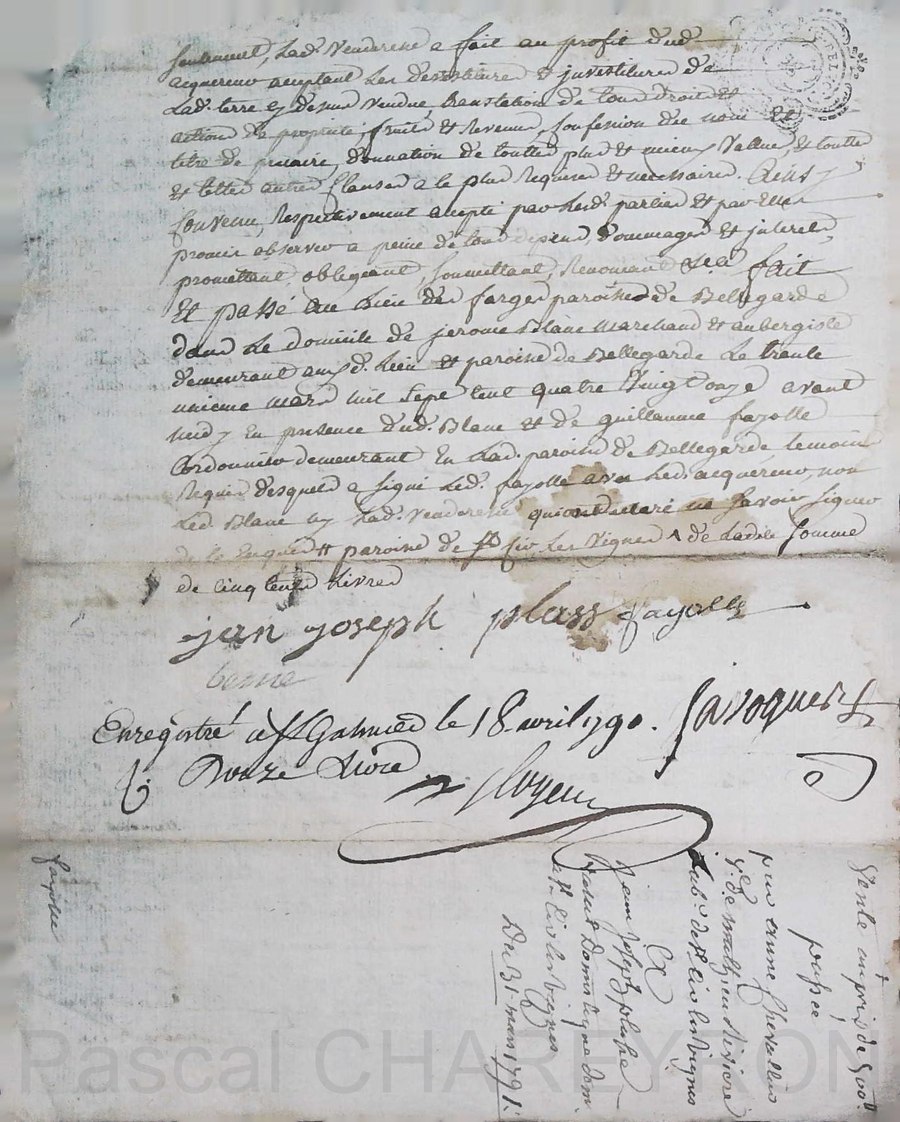 contenuet, Lad. Venderese a fait au profit dud.
acquereur aceptant les devestiture et juvestitures de
Lad. terre cy desus vendue translation de tour droit et
action de proprieté, fruits et Revenus, Confession de nom et
titre de precaire, donnation de touttes plus et mieux Vallue, et toutte
et telles autres Clauses a le plus Requises et necessaires. Ainsy
Convenu, Respectivement acepté par lesd. parties et par Elles
promis observer a peine de tous depens, dommages et jnterets
promettant, obligeant, soumettant, Renoncant &c. fait
Et passé au Lieu des forges paroisse de Bellegarde
dans Le domicile de jerome Blanc Marchand et aubergiste
demeurant aud. Lieu et paroisse de Bellegarde Le trante
unieme mars mil Sept Cent quatre Vingt onze avant
midy En presence dud. Blanc et de guillaume fayolle
Cordonnier demeurant En Lad. paroisse de Bellegarde temoins
Requis desquels a signé Led. fayolle avec Led. acquereur, non
Led. Blanc ny Lad. Venderese qui ont declaré ne savoir signer
paroisse de St Cir Les Vignes ^ de Ladite Somme
de cinq Cents Livres
jan joseph plass fayolle
Enregistré à St Galmier le 18 avril 1791. Javoques
Douze Livre
fayolle
Vente au prix de 500#
passée
par anne Chevallier
Ve de mathieu Riviere
hab. de St Cir les Vignes
a
jean joseph plasse
dom.
de St Cir les Vignes
Du 31 mars 1791.
Pascal CHAREYRON